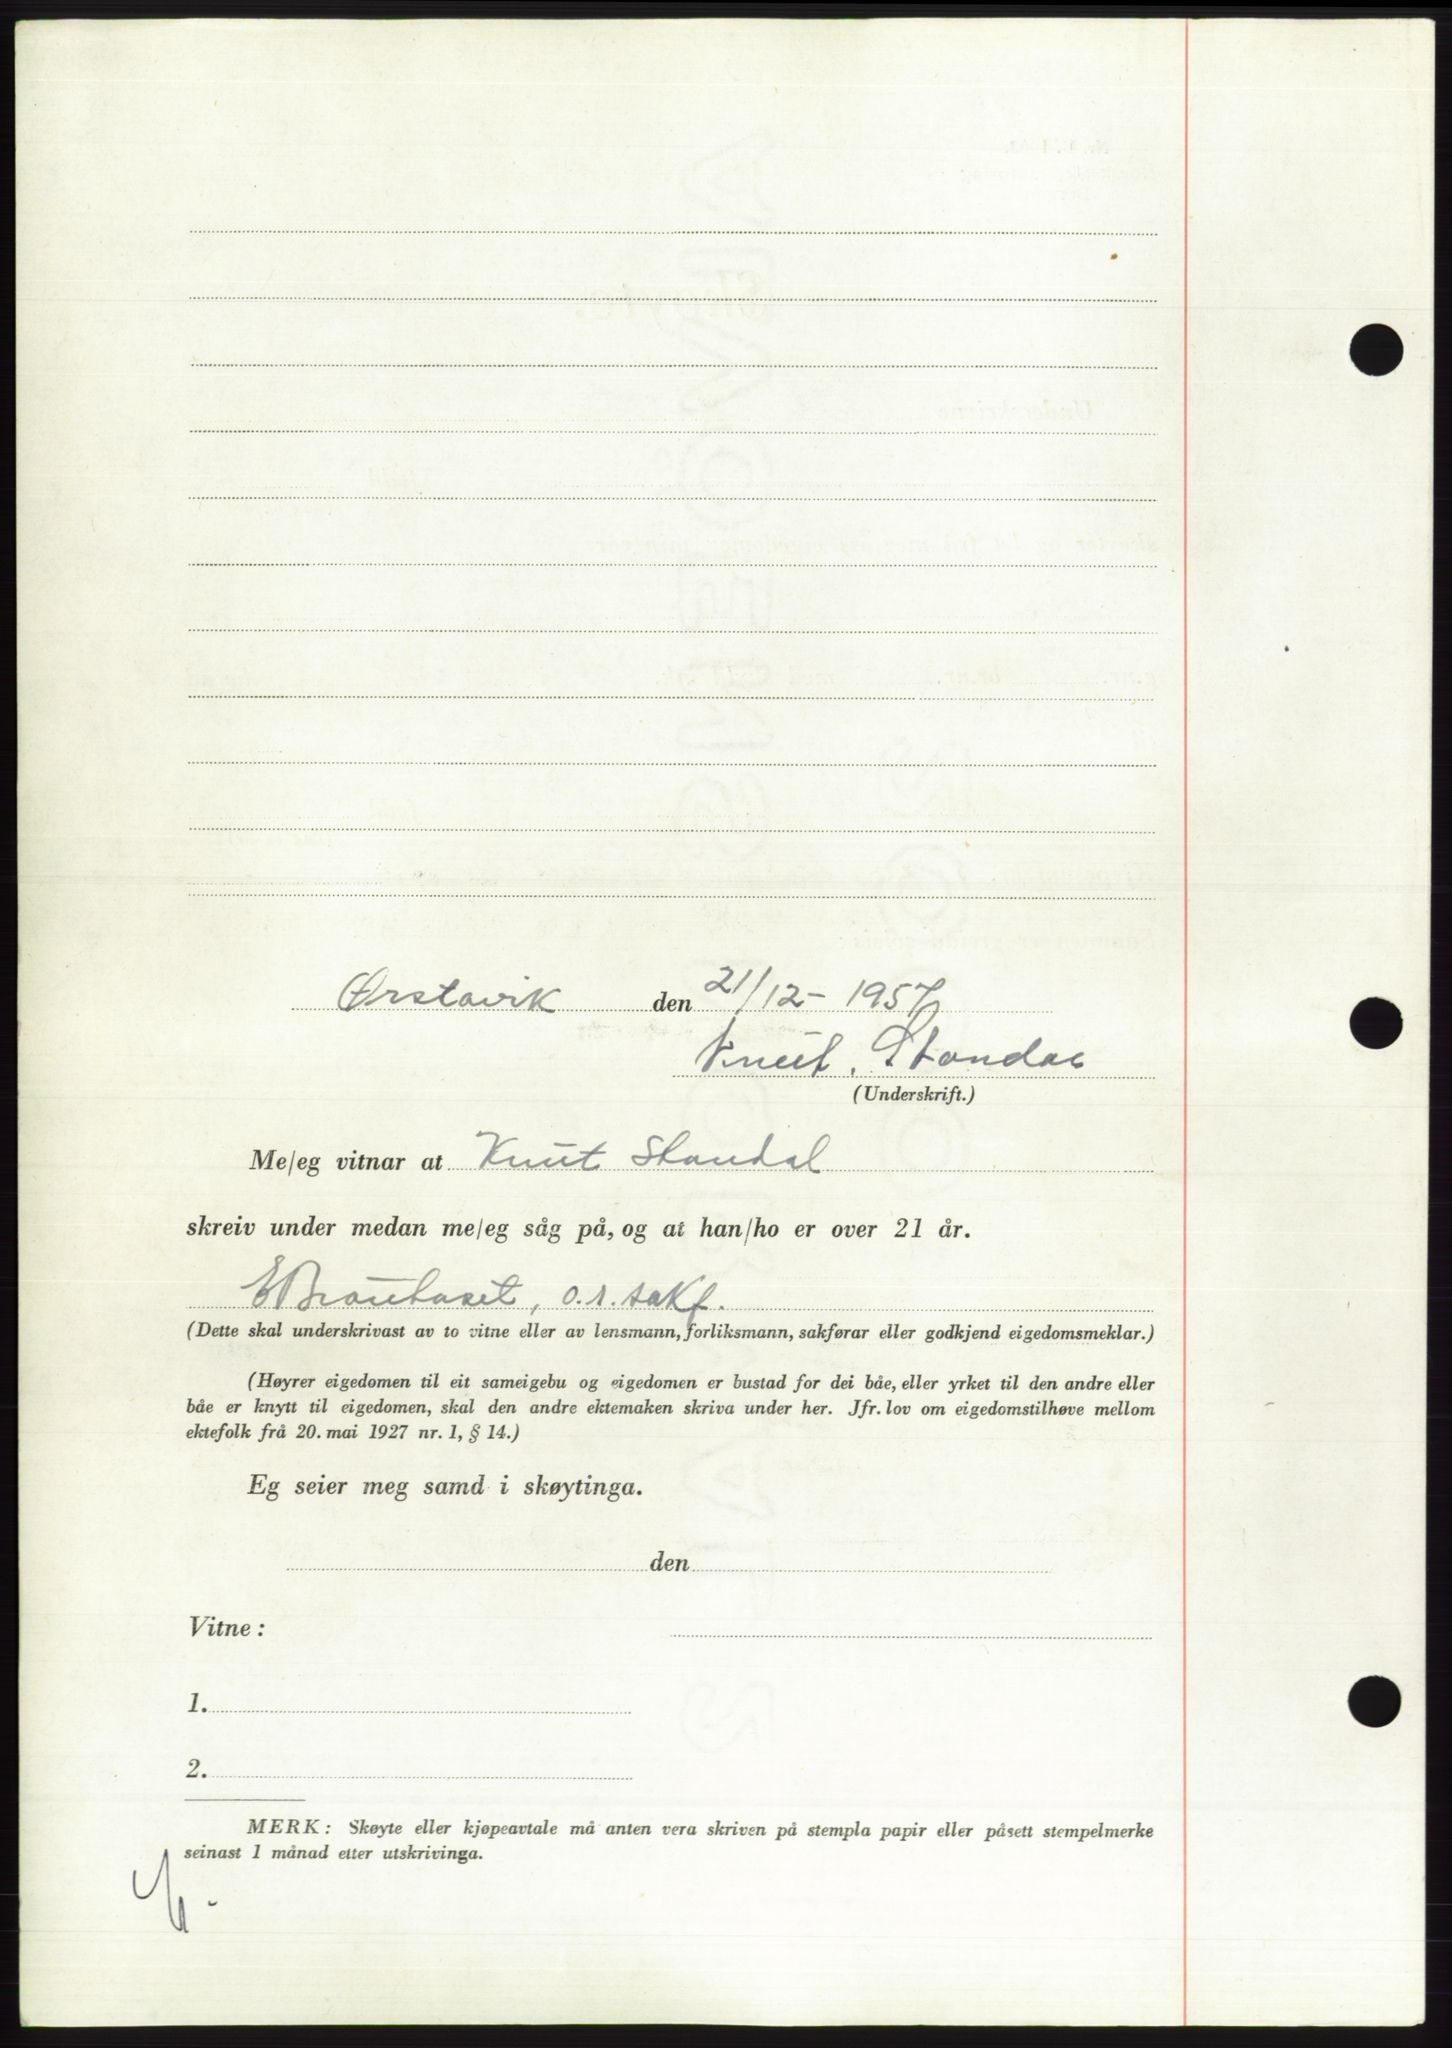 Ørstavik den 21/12 - 1957
Knut. Standal
(Underskrift.)
Me/eg vitnar at Knut Standal
skreiv under medan me/eg såg på, og at han/ho er over 21 år.
o.r.sakf.
(Dette skal underskrivast av to vitne eller av lensmann, forliksmann, sakførar eller godkjend eigedomsmeklar.)
(Høyrer eigedomen til eit sameigebu og eigedomen er bustad for dei båe, eller yrket til den andre eller
båe er knytt til eigedomen, skal den andre ektemaken skriva under her. Jfr. lov om eigedomstilhøve mellom
ektefolk frå 20. mai 1927 nr. 1, § 14.)
Eg seier meg samd i skøytinga.
den
Vitne:
1.
2.
MERK: Skøyte eller kjøpeavtale må anten vera skriven på stempla papir eller påsett stempelmerke
seinast 1 månad etter utskrivinga.